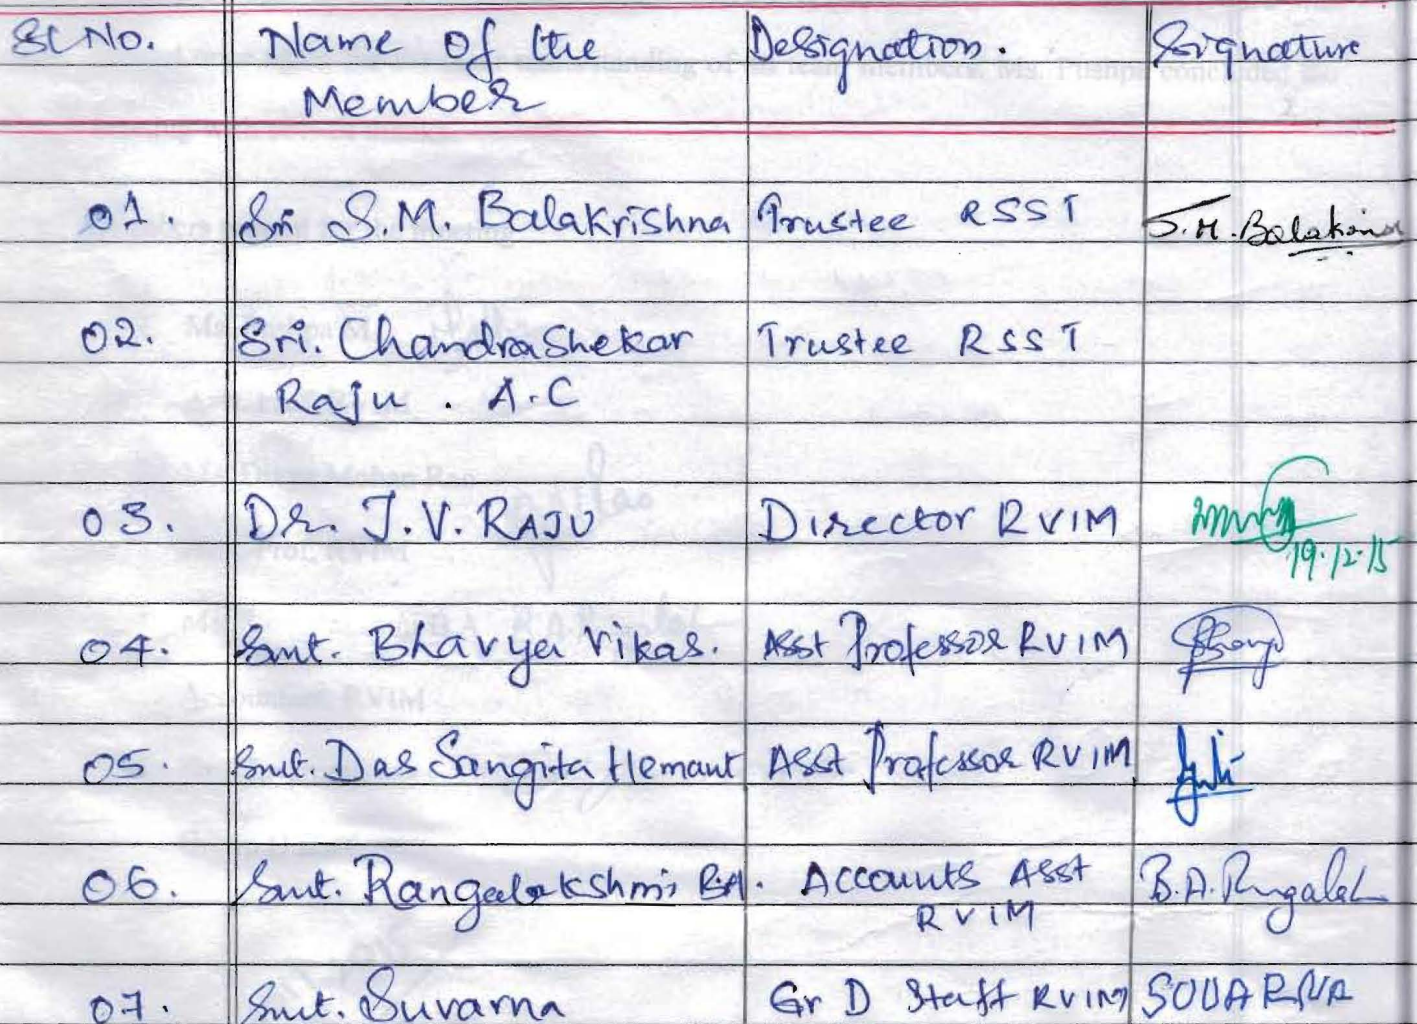 Sl No. Name of the Designation. Signature
Member
01. Sri S.M. Balakrishna Trustee RSST S.M. Balakrishna
02. Sri. Chandrashekar Trustee RSST
Raju . A.C
03. Dr. T.V. RAJU Director RVIM
19.12.15
04. Smt. Bhavya Vikas. Asst Professor RVIM
05. Smt. Das Sangita Hemant Asst Professor RVIM
06. Smt. Rangalakshmi B.A. Accounts Asst B.A. Rangalak
RVIM
07. Smt. Suvarna Gr D Staff RVIM SOUARNA